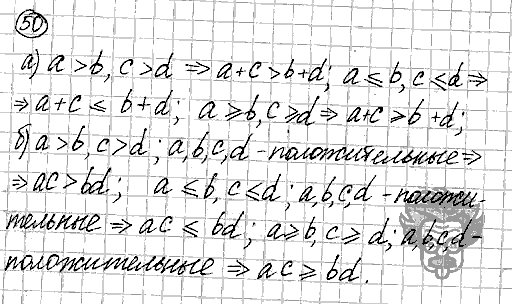 50
а) a > b, c > d ⇒ a+c > b+d; a ≤ b, c ≤ d ⇒
⇒ a+c ≤ b+d; a ≥ b, c ≥ d ⇒ a+c ≥ b+d;
б) a > b, c > d; a, b, c, d - положительные ⇒
⇒ ac > bd; a ≤ b, c ≤ d; a, b, c, d - положи-
тельные ⇒ ac ≤ bd; a ≥ b, c ≥ d; a, b, c, d -
положительные ⇒ ac ≥ bd.